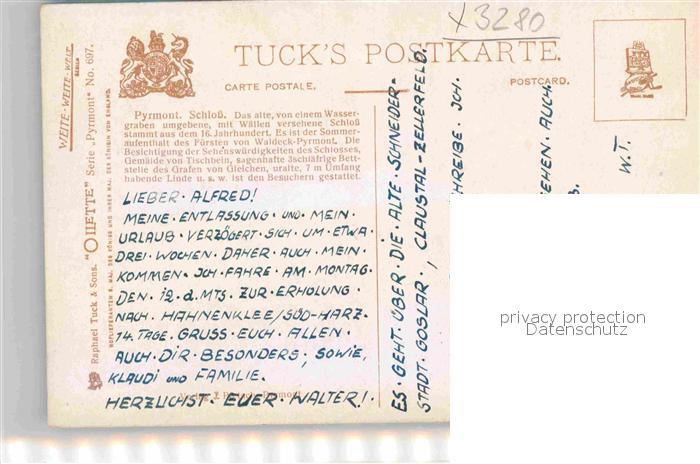 X3280
TUCK'S POSTKARTE.
CARTE POSTALE.
POSTCARD.
WEITE-WEITE-WELT
BERLIN
Raphael Tuck & Sons. "OILETTE" Serie „Pyrmont" No. 697.
HOFLIEFERANTEN S. MAJ. DES KÖNIGS UND IHRER MAJ. DER KÖNIGIN VON ENGLAND.
Pyrmont. Schloß. Das alte, von einem Wasser-
graben umgebene, mit Wällen versehene Schloß
stammt aus dem 16. Jahrhundert. Es ist der Sommer-
aufenthalt des Fürsten von Waldeck-Pyrmont. Die
Besichtigung der Sehenswürdigkeiten des Schlosses,
Gemälde von Tischbein, sagenhafte 3schläfrige Bett-
stelle des Grafen von Gleichen, uralte, 7 m Umfang
habende Linde u. s. w. ist den Besuchern gestattet.
LIEBER ALFRED!
MEINE ENTLASSUNG UND MEIN
URLAUB VERZÖGERT SICH UM ETWA
DREI WOCHEN. DAHER AUCH MEIN
KOMMEN. ICH FAHRE AM MONTAG.
DEN 12. d. MTS. ZUR ERHOLUNG
NACH HAHNENKLEE/SÜD-HARZ.
14. TAGE. GRUSS EUCH ALLEN.
AUCH DIR BESONDERS, SOWIE,
KLAUDI UND FAMILIE.
HERZLICHST EUER WALTER!
ES GEHT ÜBER DIE ALTE SCHNEIDER-
STADT GOSLAR, CLAUSTAL-ZELLERFELD.
SCHREIBE ICH.
EHEN AUCH.
W.T.
privacy protection
Datenschutz